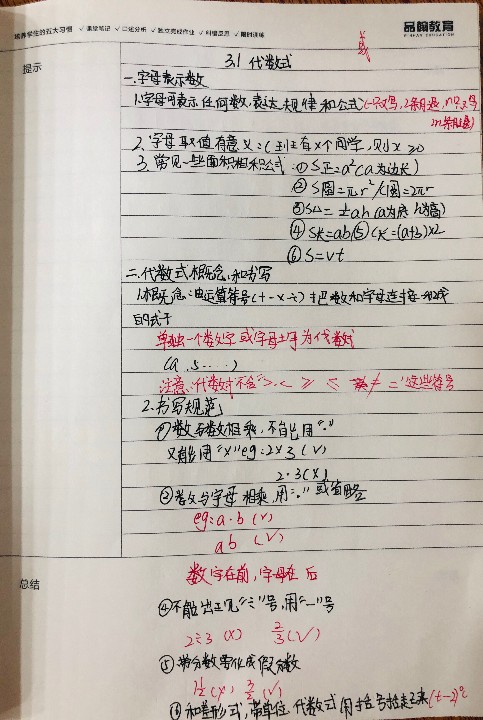 培养学生的五大习惯 ✓课堂笔记 ✓口述分析 ✓独立完成作业 ✓纠错反思 ✓限时训练
品翰教育
提示
3.1 代数式
一.字母表示数
1.字母可表示任何数,表达规律和公式(一只青,2条腿,n只青
2n条腿)
2.字母取值有意义:(到还有x个同学,则x≥0
3.常见一些面积相和公式:①S正=a²(a为边长)
②S圆=πr²/C圆=2πr
③S△=½ah(a为底h为高)
④S长=ab⑤C长=(a+b)×2
⑥S=vt
二.代数式概念和书写
1.概念:由运算符号(+-×÷)把数和字母连接而成
的式子
单独一个数字或字母也为代数式
(a,5....)
注意:代数式不含">,<≥≤≠="这些符号
2.书写规范
①数与数相乘,不能用"·"
只能用"×"eg:2×3(√)
2·3(×)
②数与字母相乘,用"·"或省略
eg:a·b(√)
ab(√)
总结
数字在前,字母在后
④不能出现"÷"号,用"—"号
2÷3(×) 2/3(√)
⑤带分数要化成假分数
1½(×) 3/2(√)
⑥和差形式,带单位,代数式用括号括起来(t-2)℃